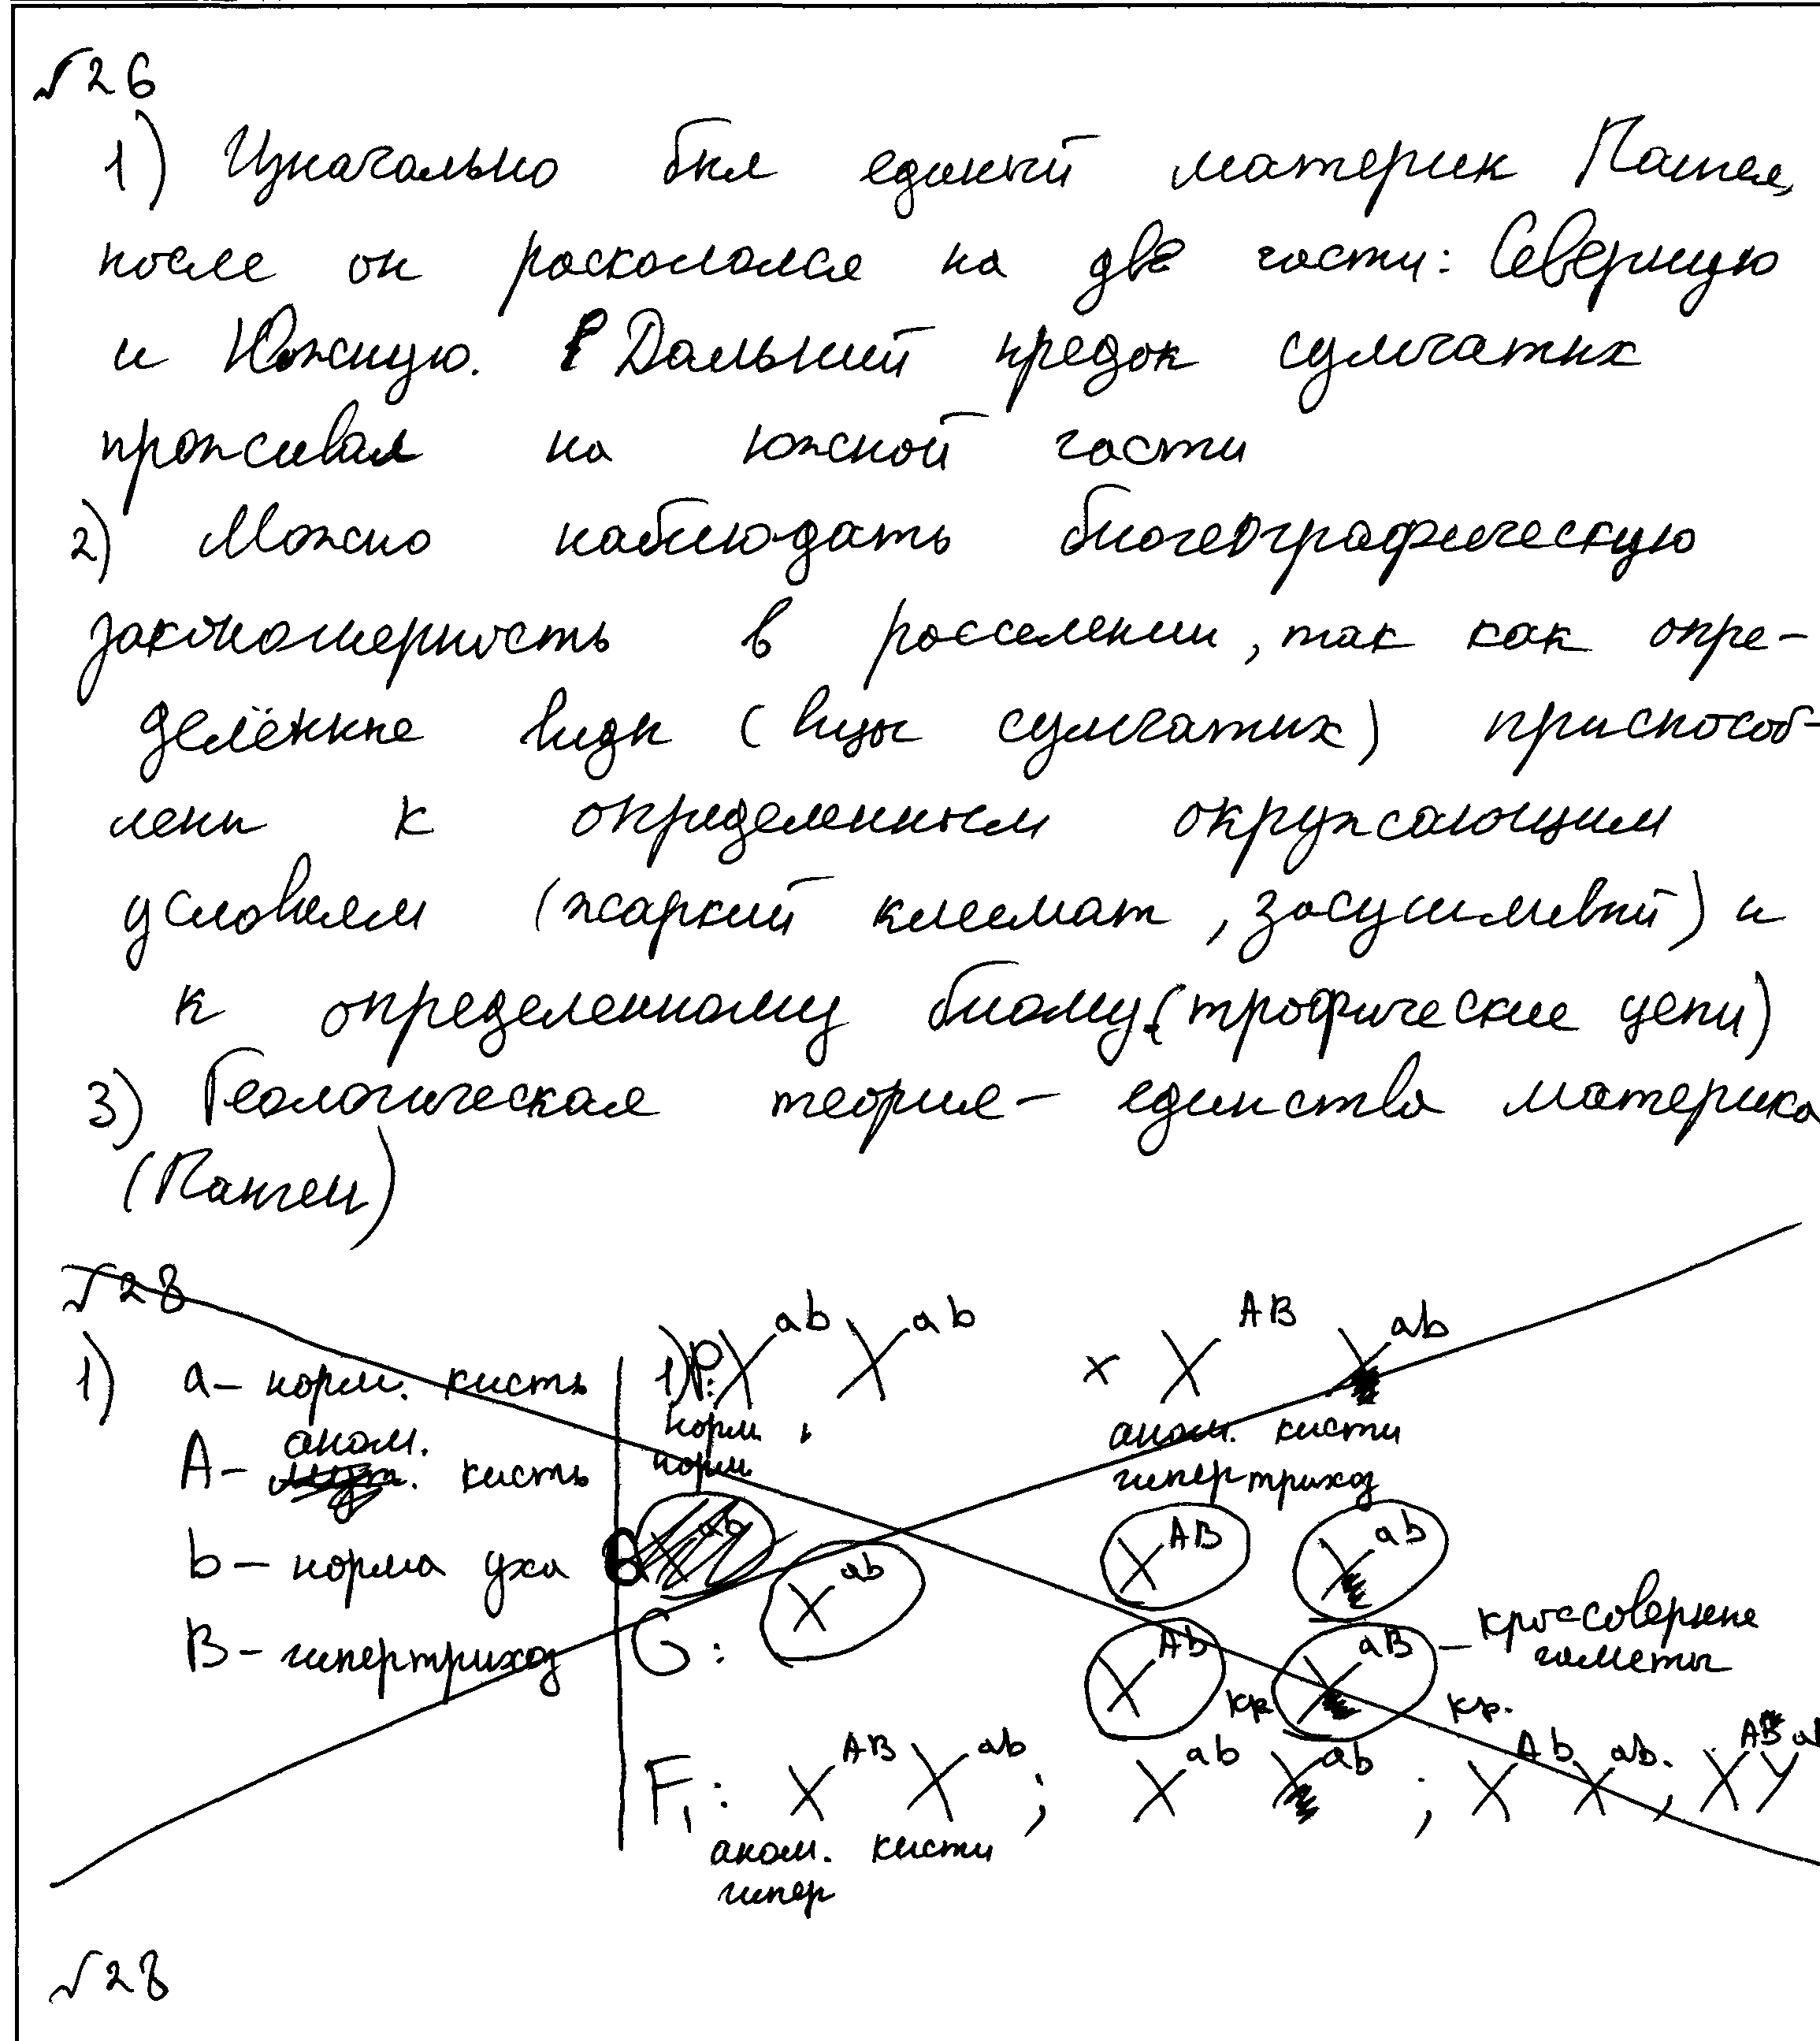 №26
1) Изначально был единый материк Пангея,
после он раскололся на две части: Северную
и Южную. Дальний предок сумчатых
проживал на южной части
2) Можно наблюдать биогеографическую
закономерность в расселении, так как опре-
делённые виды (виды сумчатых) приспособ-
лены к определенным окружающим
условиям (жаркий климат, засушливый) и
к определенному биому (трофические цепи)
3) Геологическая теория - единства материка
(Пангеи)
№28
1) a - норм. кисть
A - аном. кисть
b - норма уха
B - гипертрихоз
1) P: X^ab X^ab × X^AB X^ab
норм. , аном. кисти
норм. гипертрихоз
G: X^ab X^AB X^ab
X^Ab кр. X^aB кр. - кроссоверные
гаметы
F1: X^AB X^ab ; X^ab X^ab ; X^Ab X^ab ; XY
аном. кисти
гипер
№28